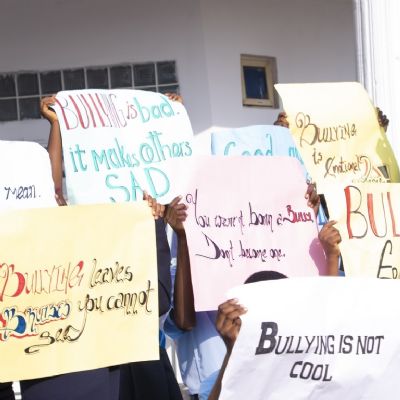 BULLYING is bad.
it makes others
SAD
Good
Bullying
is
mean.
You weren't born a Bully.
Don't become one.
BUL
Bullying leaves
Bruises you cannot
see
BULLYING IS NOT
COOL